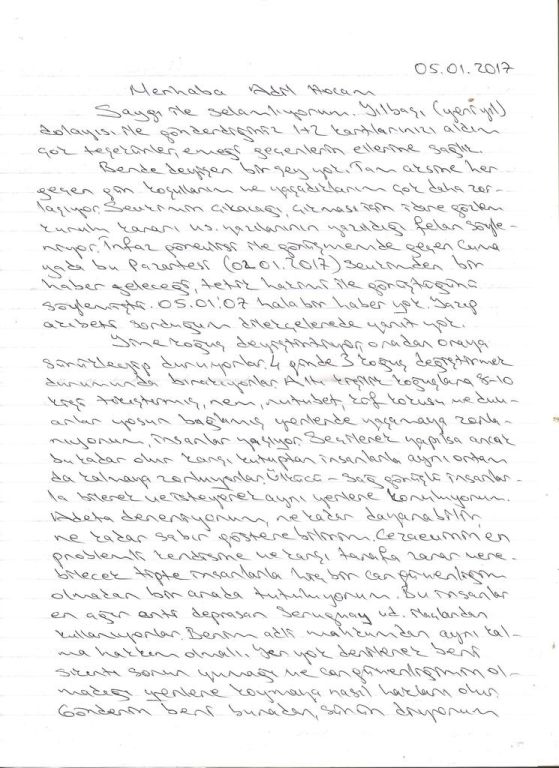 05.01.2017
Merhaba Adil Hocam
Saygı ile selamlıyorum. Yılbaşı (yeni yıl)
dolayısı ile gönderdiğiniz 1+2 kartlarınızı aldım
çok teşekürler, emeği geçenlerin ellerine sağlık.
Bende deyişen bir şey yok. Tam aksine her
geçen gün koşullarım ve yaşadıklarım çok daha zor-
laşıyor. Sevkimin çıkacağı, çıkması için idare gözlem
kurulu kararı vs. yazılarının yazıldığı felan söyle-
niyor. İnfaz ile görüşmemde geçen Cuma
yada bu Pazartesi (02.01.2017) sevkimden bir
haber geleceği, tetkik hakimi ile görüştüğünü
söylemişti. 05.01.'07 hala bir haber yok. Yazıp
akıbeti sorduğum dilekçelerede yanıt yok.
Yine koğuş deyiştiriliyor, oradan oraya
sürükleyip duruyorlar. 4 günde 3 koğuş değiştirmek
durumunda bırakıyorlar. Altı kişilik koğuşlara 8-10
kişi tıkıştırmış, nem, rutubet, küf kokusu ve duv-
arlar yosun bağlamış yerlerde yaşamaya zorla-
nıyorum, insanlar yaşıyor. Seçilerek yapılsa ancak
bu kadar olur karşı kutuptan insanlarla aynı ortam
da kalmaya zorluyorlar. Ülkücü - sağ görüşlü insanlar-
la bilerek ve isteyerek aynı yerlere konuluyorum.
Adeta deneniyorum, ne kadar dayanabilir,
ne kadar sabır gösterebilirim. Cezaevinin en
problemli kendisine ve karşı tarafa zarar vere-
bilecek tipte insanlarla hiç bir can güvenliğim
olmadan bir arada tutuluyorum. Bu insanlar
en ağır anti deprasan Seruquay vd. ilaçlardan
kullanıyorlar. Benim adli mahkumdan ayrı kal-
ma hakkım olmalı. Yer yok denilerek beni
sıkıntı sorun yumağı ve can güvenliğimin ol-
madığı yerlere koymaya nasıl hakları olur
Gönderin beni buradan, sürün diyorum